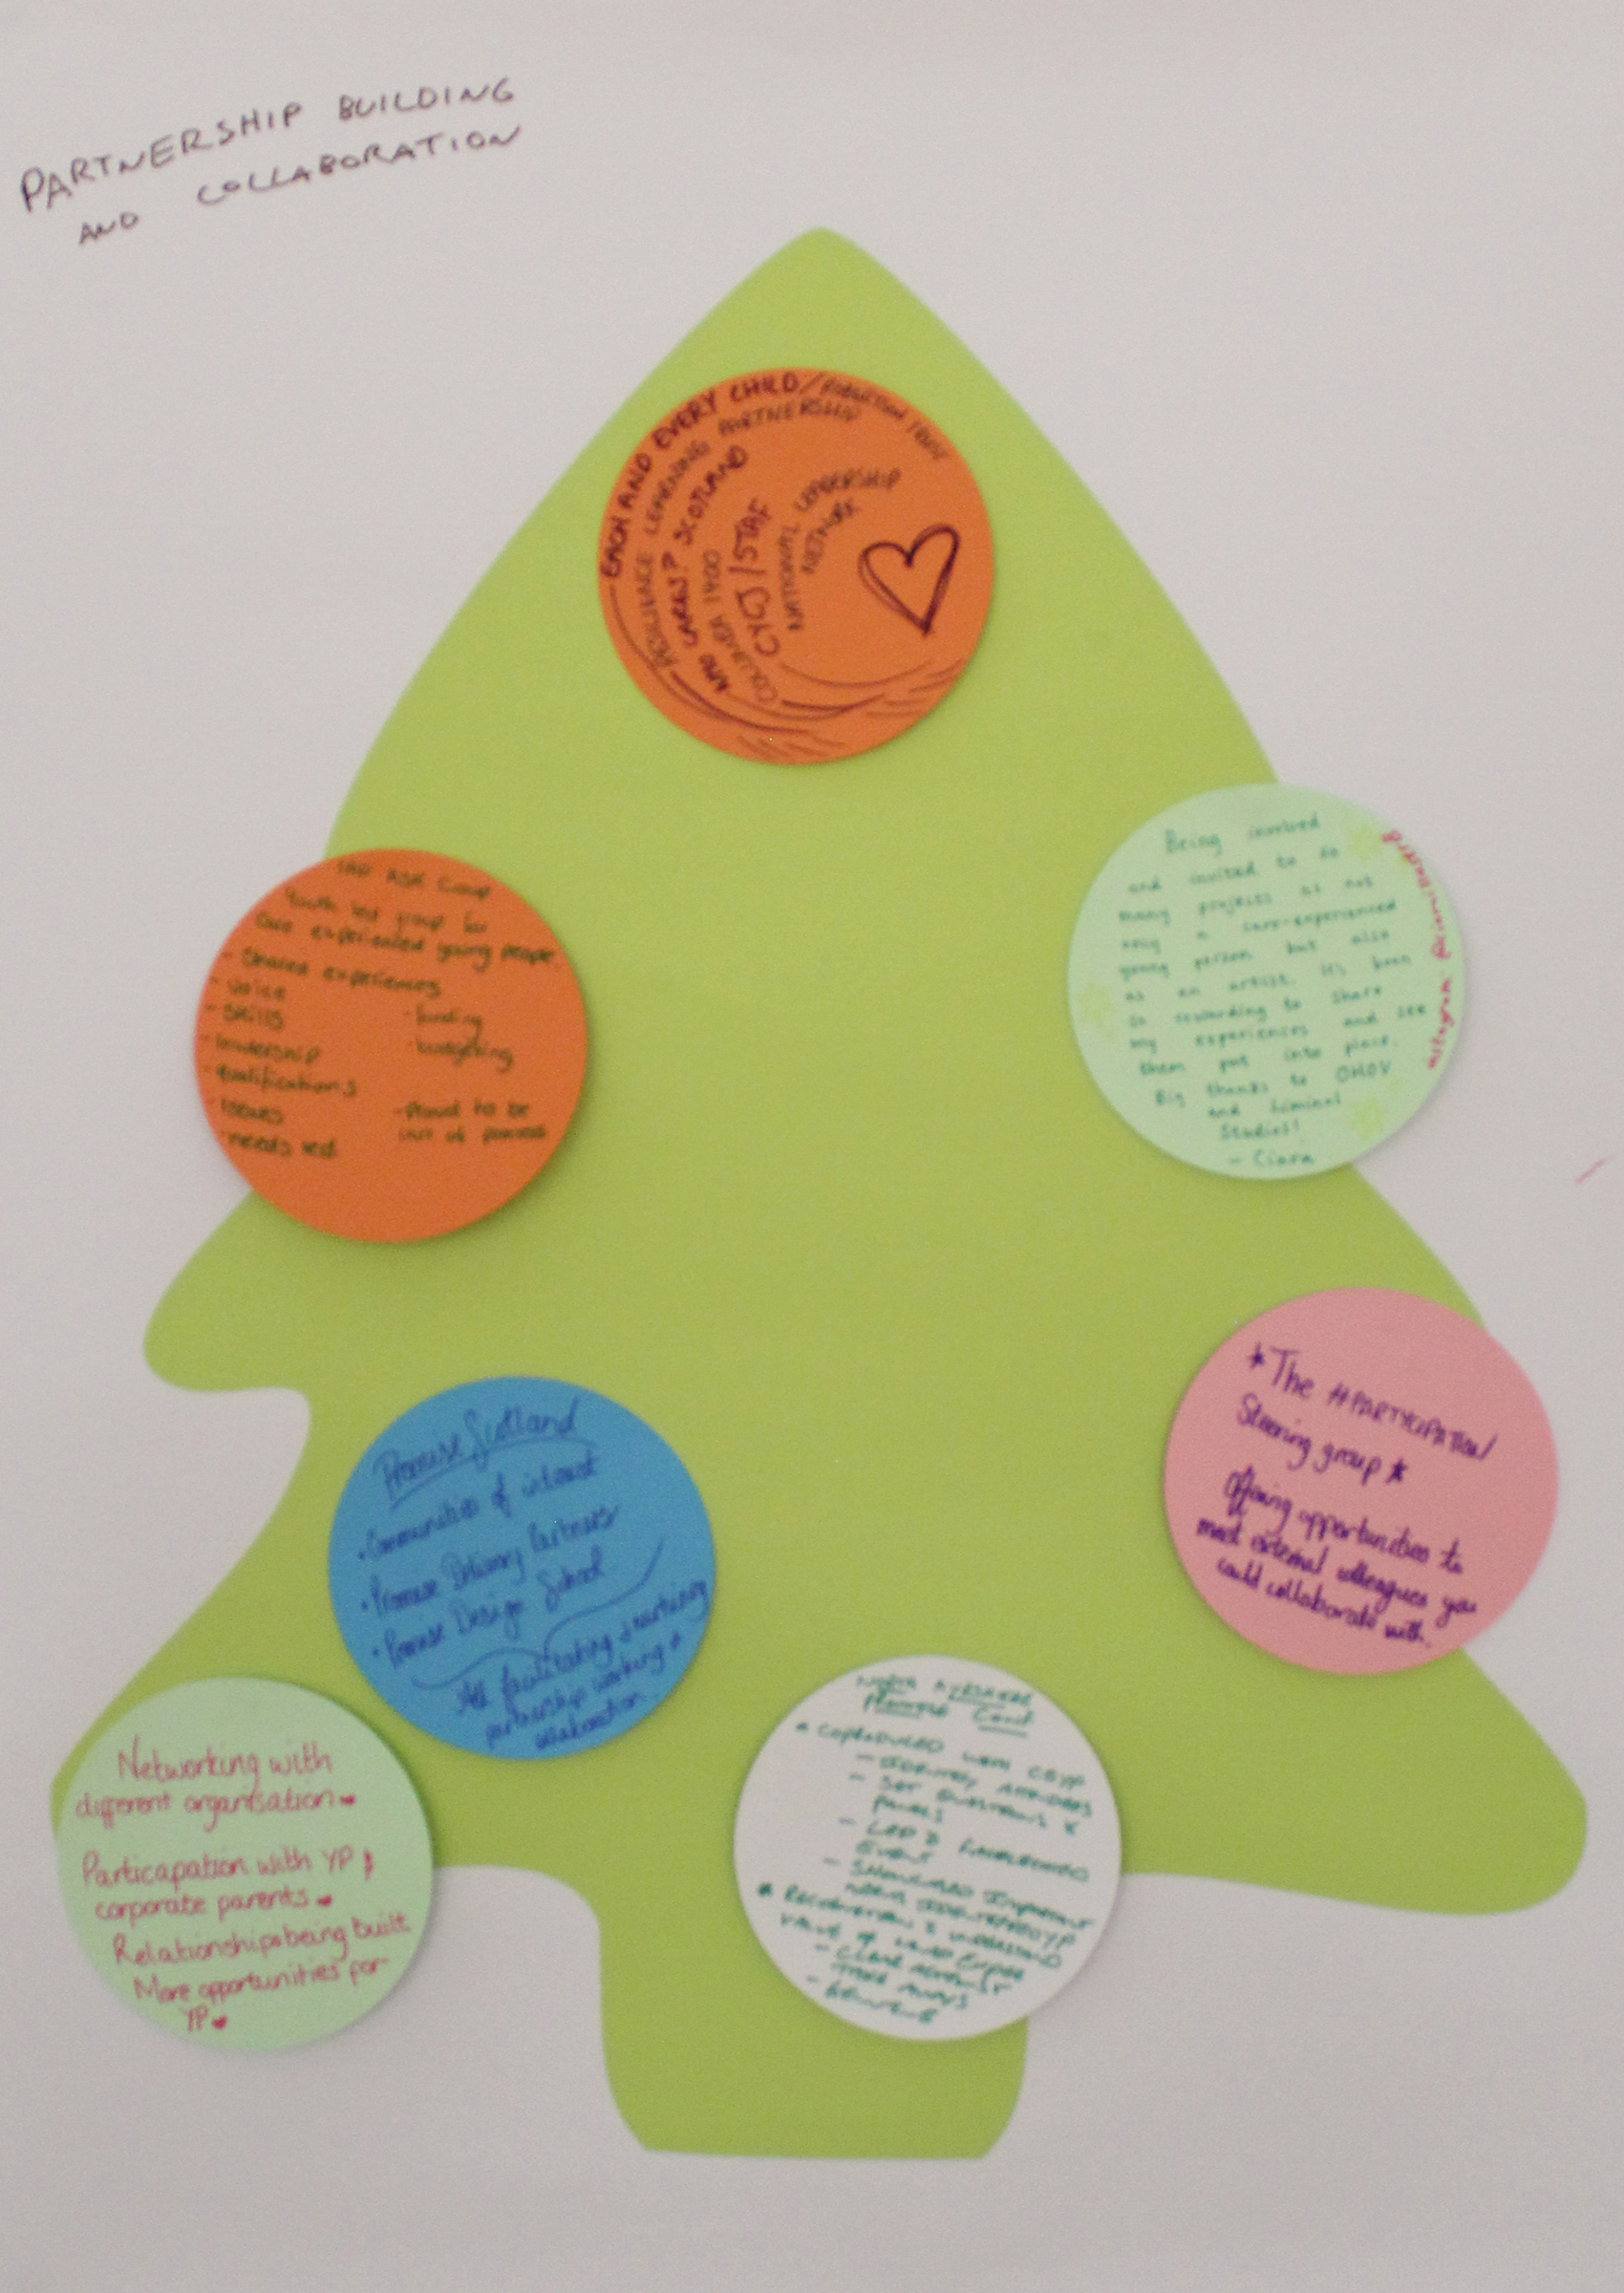 PARTNERSHIP BUILDING
AND COLLABORATION
EACH AND EVERY CHILD / ROBERTSON TRUST
RESILIENCE LEARNING PARTNERSHIP
WHO CARES? SCOTLAND
COLUMBA 1400
CYCJ / STAF
NATIONAL LEADERSHIP
NETWORK
Youth led group for
Care experienced young people
- Shared experiences
- Voice
- Skills
- leadership
- qualifications
- Issues
- needs led
- funding
- budgeting
- Proud to be
Being involved
and invited to so
many projects as not
only a care-experienced
young person but also
as an artist. It's been
so rewarding to share
my experiences and see
them put into place.
Big thanks to OHOV
and Liminal
Studios!
- Ciara
Promise Scotland
• Communities of interest
• Promise Delivery Partners
• Promise Design School
All facilitating & nurturing
partnership working +
collaboration
* The #PARTYCIPATION
Steering group *
Offering opportunities to
meet external colleagues you
could collaborate with.
Networking with
different organisation
Particapation with YP
corporate parents
Relationships being built
More opportunities for
YP
NORTH AYRSHIRE
PROMISE
COPRODUCED WITH CEYP
- IDENTIFY ATTENDEES
- SET QUESTIONS
PANELS
EVENT
VALUE OF